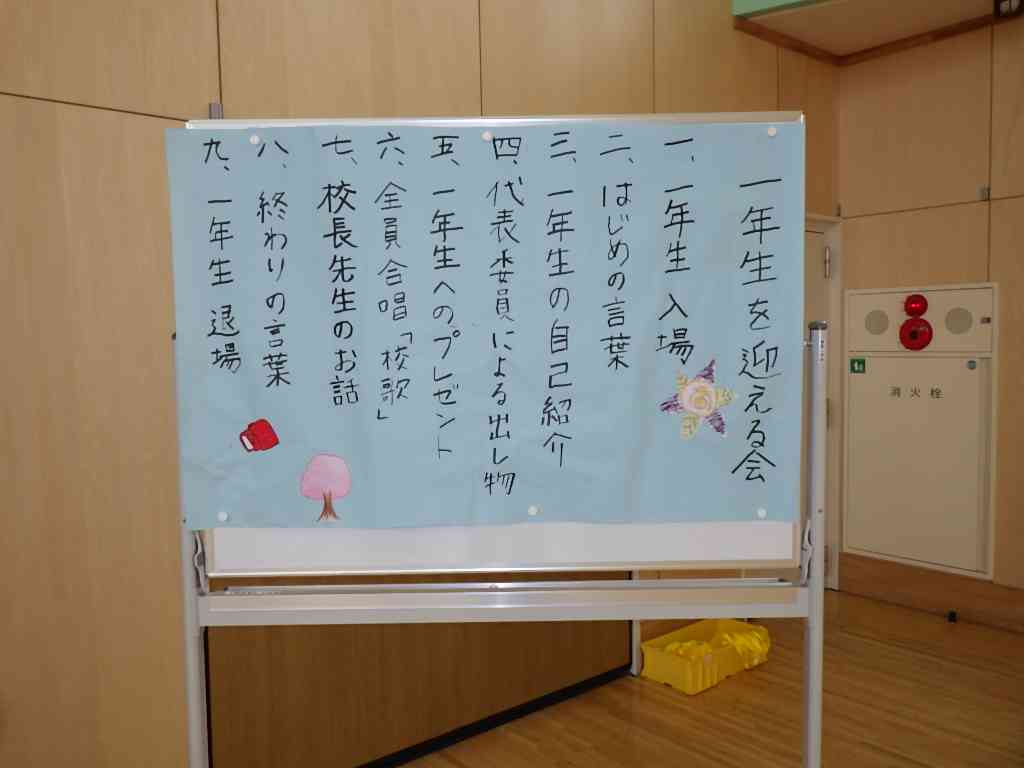 一年生を迎える会
一、一年生 入場
二、はじめの言葉
三、一年生の自己紹介
四、代表委員による出し物
五、一年生へのプレゼント
六、全員合唱「校歌」
七、校長先生のお話
八、終わりの言葉
九、一年生 退場
消火栓